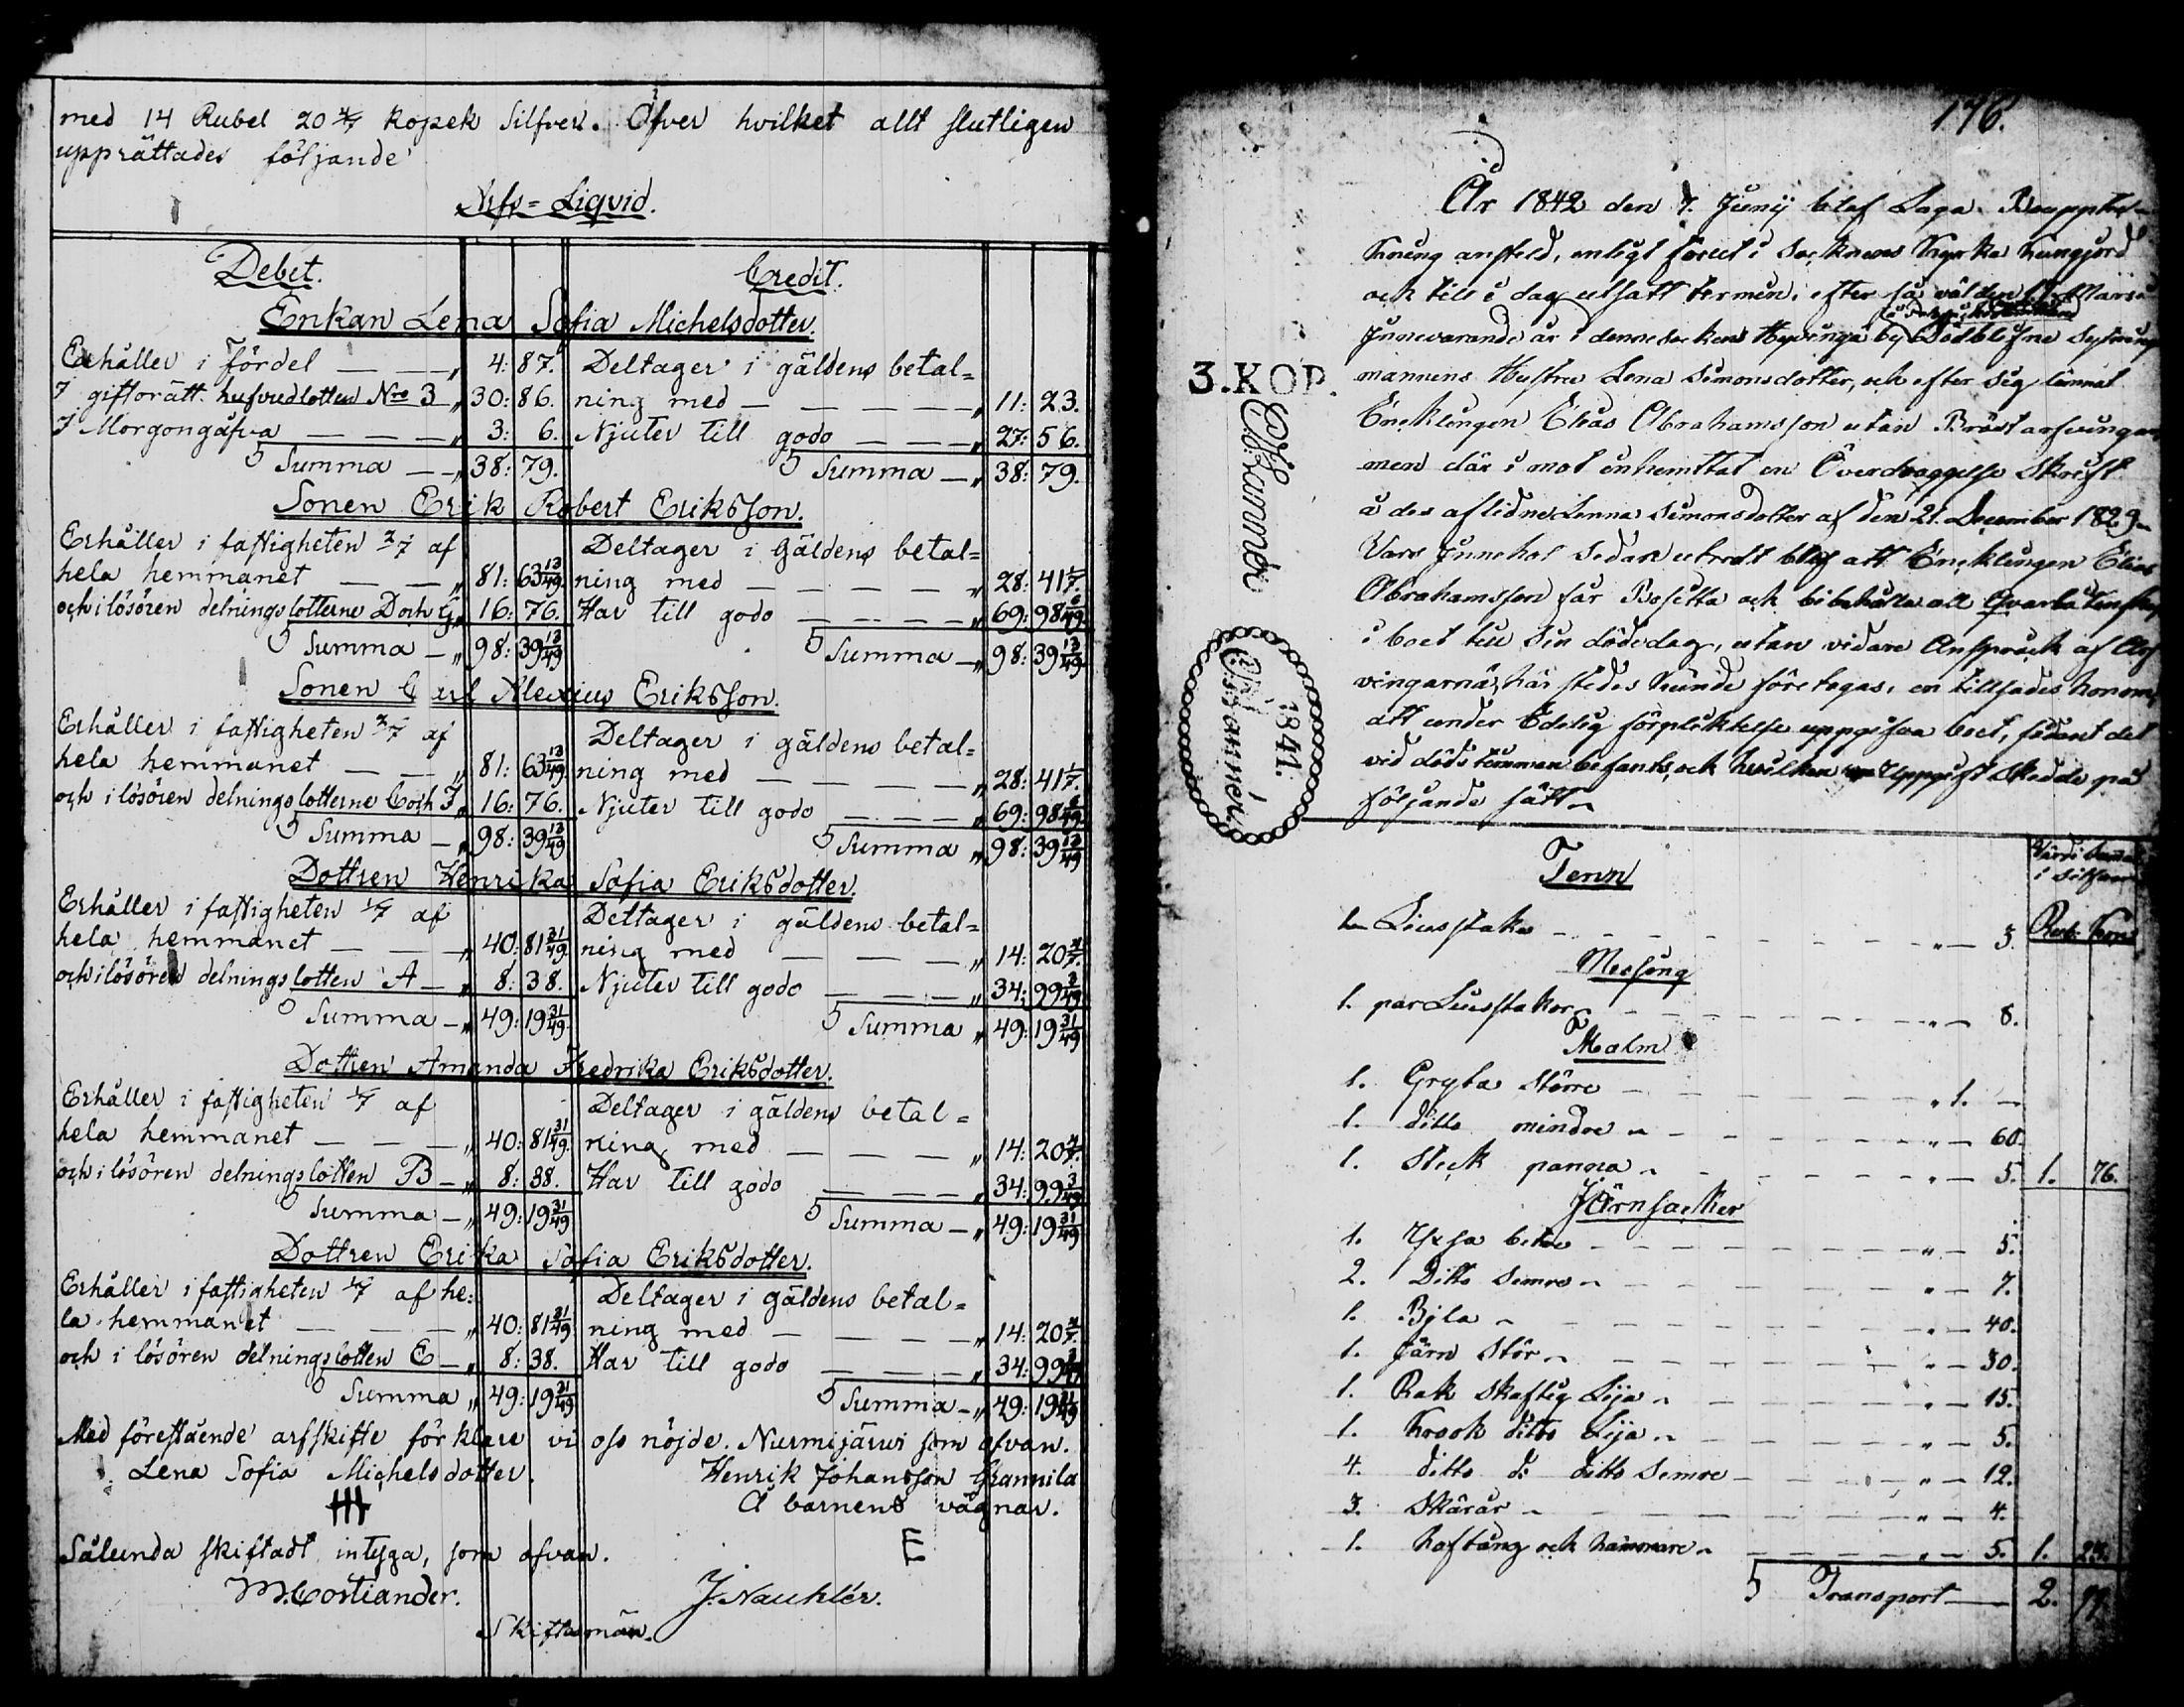 med 14 Rubel 20 4/7 kopek Silfver. Öfver hvilket allt slutligen
upprättades följande
Arfs=Liqvid.
Debet. Credit.
Enkan Lena Sofia Michelsdotter.
Erhåller i fördel — — „ 4: 87. Deltager i gäldens betal=
I giftorätt hufvudlotten Nro 3 „ 30: 86. ning med — — — — — „ 11: 23.
I Morgongåfva — — — „ 3: 6. Njuter till godo — — — „ 27: 56.
Summa — „ 38: 79. Summa — „ 38: 79.
Sonen Erik Robert Eriksson.
Erhåller i fastigheten 2/7 af Deltager i Gäldens betal=
hela hemmanet — — „ 81: 63 13/49. ning med — — — — „ 28: 41 1/7.
och i lösören delningslotterne D och G „ 16: 76. Har till godo — — — — „ 69: 98 6/49.
Summa — „ 98: 39 13/49 Summa — „ 98: 39 13/49
Sonen Carl Alexius Eriksson.
Erhåller i fastigheten 2/7 af Deltager i gäldens betal=
hela hemmanet — — „ 81: 63 13/49. ning med — — — — „ 28: 41 1/7.
och i lösören delningslotterne C och F „ 16: 76. Njuter till godo — — — „ 69: 98 6/49.
Summa — „ 98: 39 13/49 Summa „ 98: 39 13/49
Dottren Henrika Sofia Eriksdotter.
Erhåller i fastigheten 1/7 af Deltager i gäldens betal=
hela hemmanet — — — „ 40: 81 31/49. ning med — — — „ 14: 20 4/7.
och i lösören delningslotten A — „ 8: 38. Njuter till godo — — — „ 34: 99 3/49
Summa — „ 49: 19 31/49. Summa „ 49: 19 31/49
Dottren Amanda Fredrika Eriksdotter.
Erhåller i fastigheten 1/7 af Deltager i gäldens betal=
hela hemmanet — — — „ 40: 81 31/49. ning med — — — „ 14: 20 4/7.
och i lösören delningslotten B — „ 8: 38. Har till godo — — — „ 34: 99 3/49
Summa — „ 49: 19 31/49 Summa — „ 49: 19 31/49
Dottren Erika Sofia Eriksdotter.
Erhåller i fastigheten 1/7 af he= Deltager i gäldens betal=
la hemmanet — — — „ 40: 81 31/49. ning med — — — — „ 14: 20 4/7.
och i lösören delningslotten E — „ 8: 38. Har till godo — — — — „ 34: 99
Summa „ 49: 19 31/49 Summa — „ 49: 19 31/49
Med förestående arfskifte förklare vi oss nöjde. Nurmijärwi som ofvan.
Lena Sofia Michelsdotter. Henrik Johansson Grannila
Å barnens vägnar.
Sålunda skiftadt, intyga, som ofvan. E
M. Costiander. J. Nauklér.
Skiftesmän.
176.
År 1842 den 7. Junij blef Laga Bouppteck-
kning ansteld, enligt förut i Socknens Kyrka kungjord
och till i dag utsatt termin, efter så väl den 17. Marsi
Innevarande år i denne Socken by Dödblefne Sytnings
3.KOP. mannens Hustru Lena Simonsdotter, och efter sig lämnat
Encklingen Elias Abrahamsson utan Bröstarfvingar
men där i mot inlemnat en Skrift
å den aflidne Lenna Simonsdotter af den 21. December 1829
Vars Innehol sedan utredt blef att Encklingen Elias
Abrahamsson får Besitta och bibehålla all Qvarlåtenskap
i boet till sin dödedag, utan vidare Anspråck af Arf
vingarna, här stedes kunde företagas, en tillsades honom,
att under Edelig förpliktelse uppgifva boet, sådant det
vid dödstimman befants, och hvilken Uppgift skedde på
följande sätt
1841.
Tenn
i Silfver
Rub. Kop
Liusstake — „ — 3.
Messing
1. par Liusstakor — „ — 8.
Malm
1. Gryta större — „ 1. —
1. ditto mindre — „ — 60.
1. Steck panna — „ — 5. 1. 76.
Järnsacker
1. Yxsa bettre — „ — 5.
2. Ditto Semre — „ — 7.
1. Bjla — „ — 40.
1. Järn Stör — „ — 30.
1. Rak skaftig Lija — „ — 15.
1. Krook ditto Lija — „ — 5.
4. ditto d: ditto Semre — „ — 12.
3. Skäror — „ — 4.
1. Hoftång och hammare — „ — 5. 1. 23.
Transport — 2. 99.